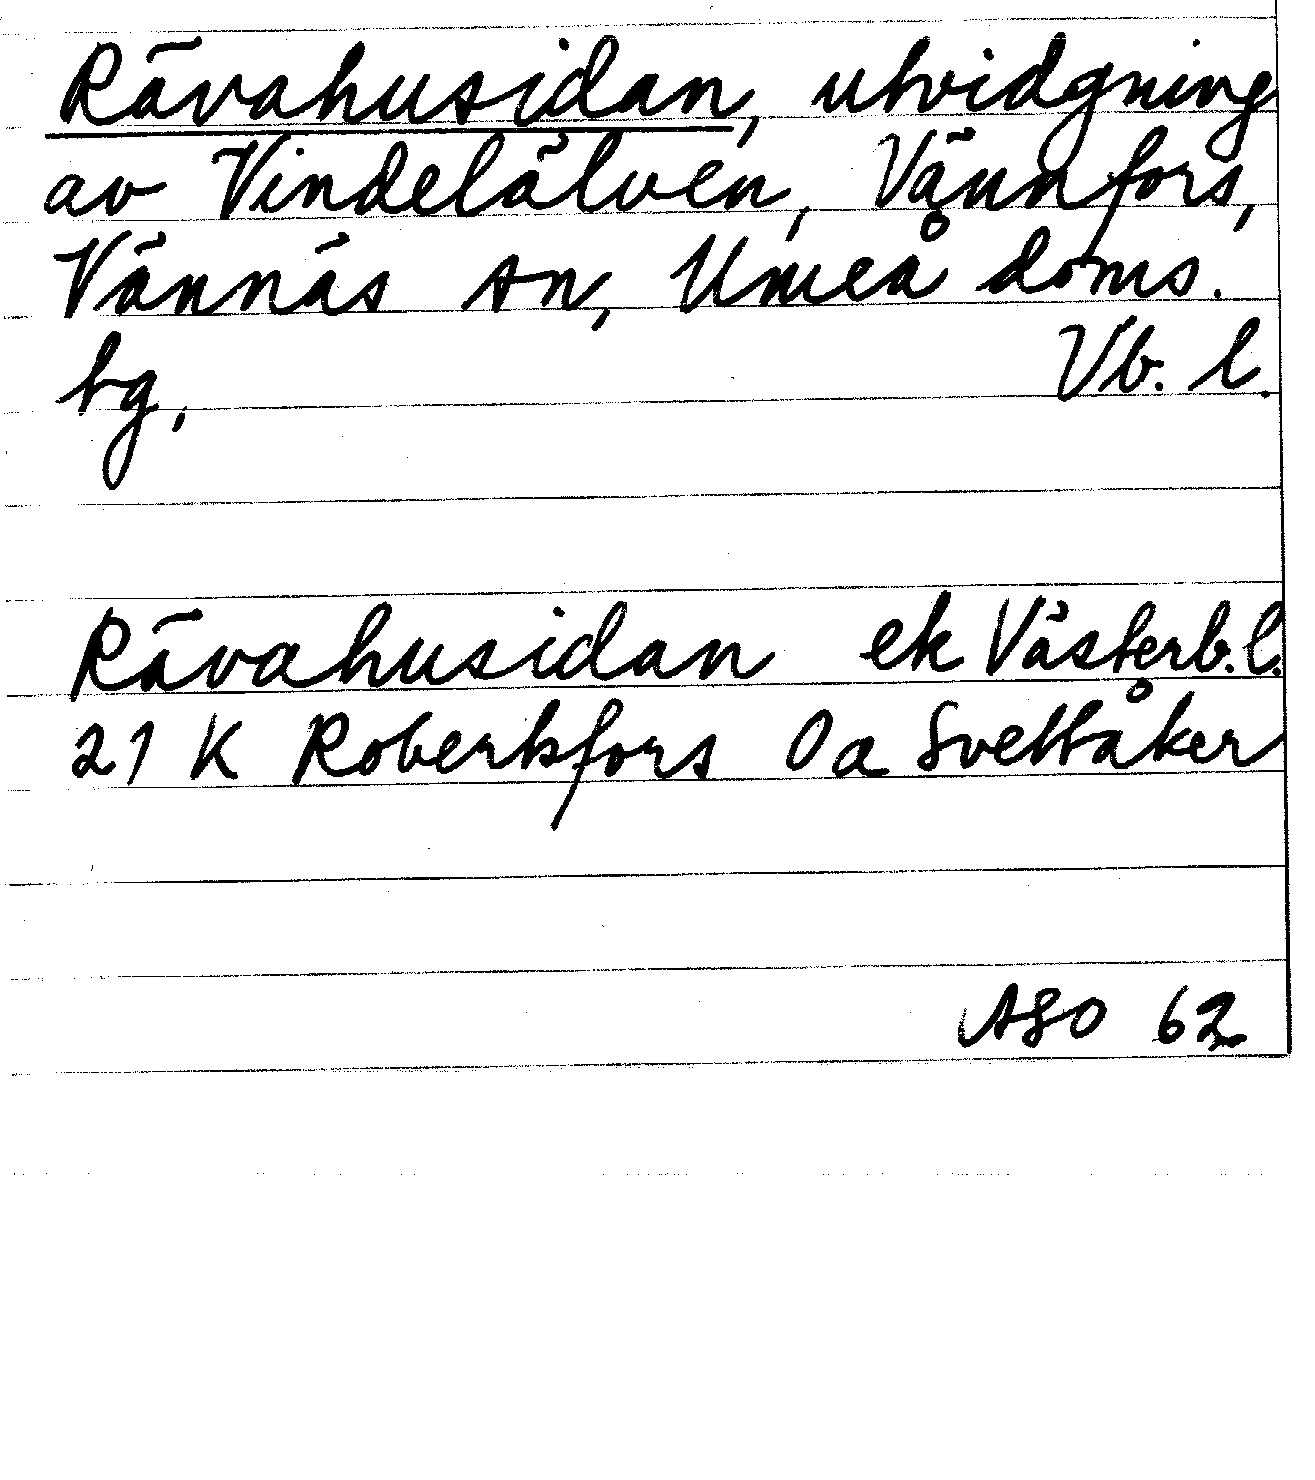 Rävahusidan, utvidgning
av Vindelälven, Vännfors,
Vännäs sn, Umeå doms.
tg, Vb. l.
Rävahusidan ek Västerb. l.
21 K Robertsfors 0a Svettåker
ASO 62